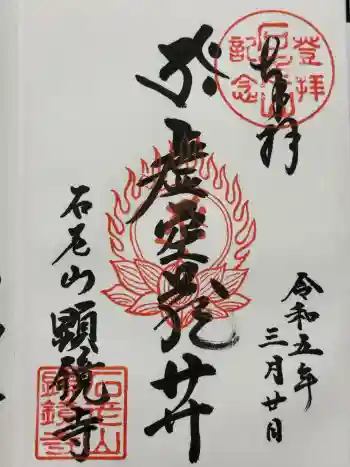 奉拝
登拝
記念
虚空蔵廾
令和五年
三月廿日
石老山
顕鏡寺
石老山
顕鏡寺